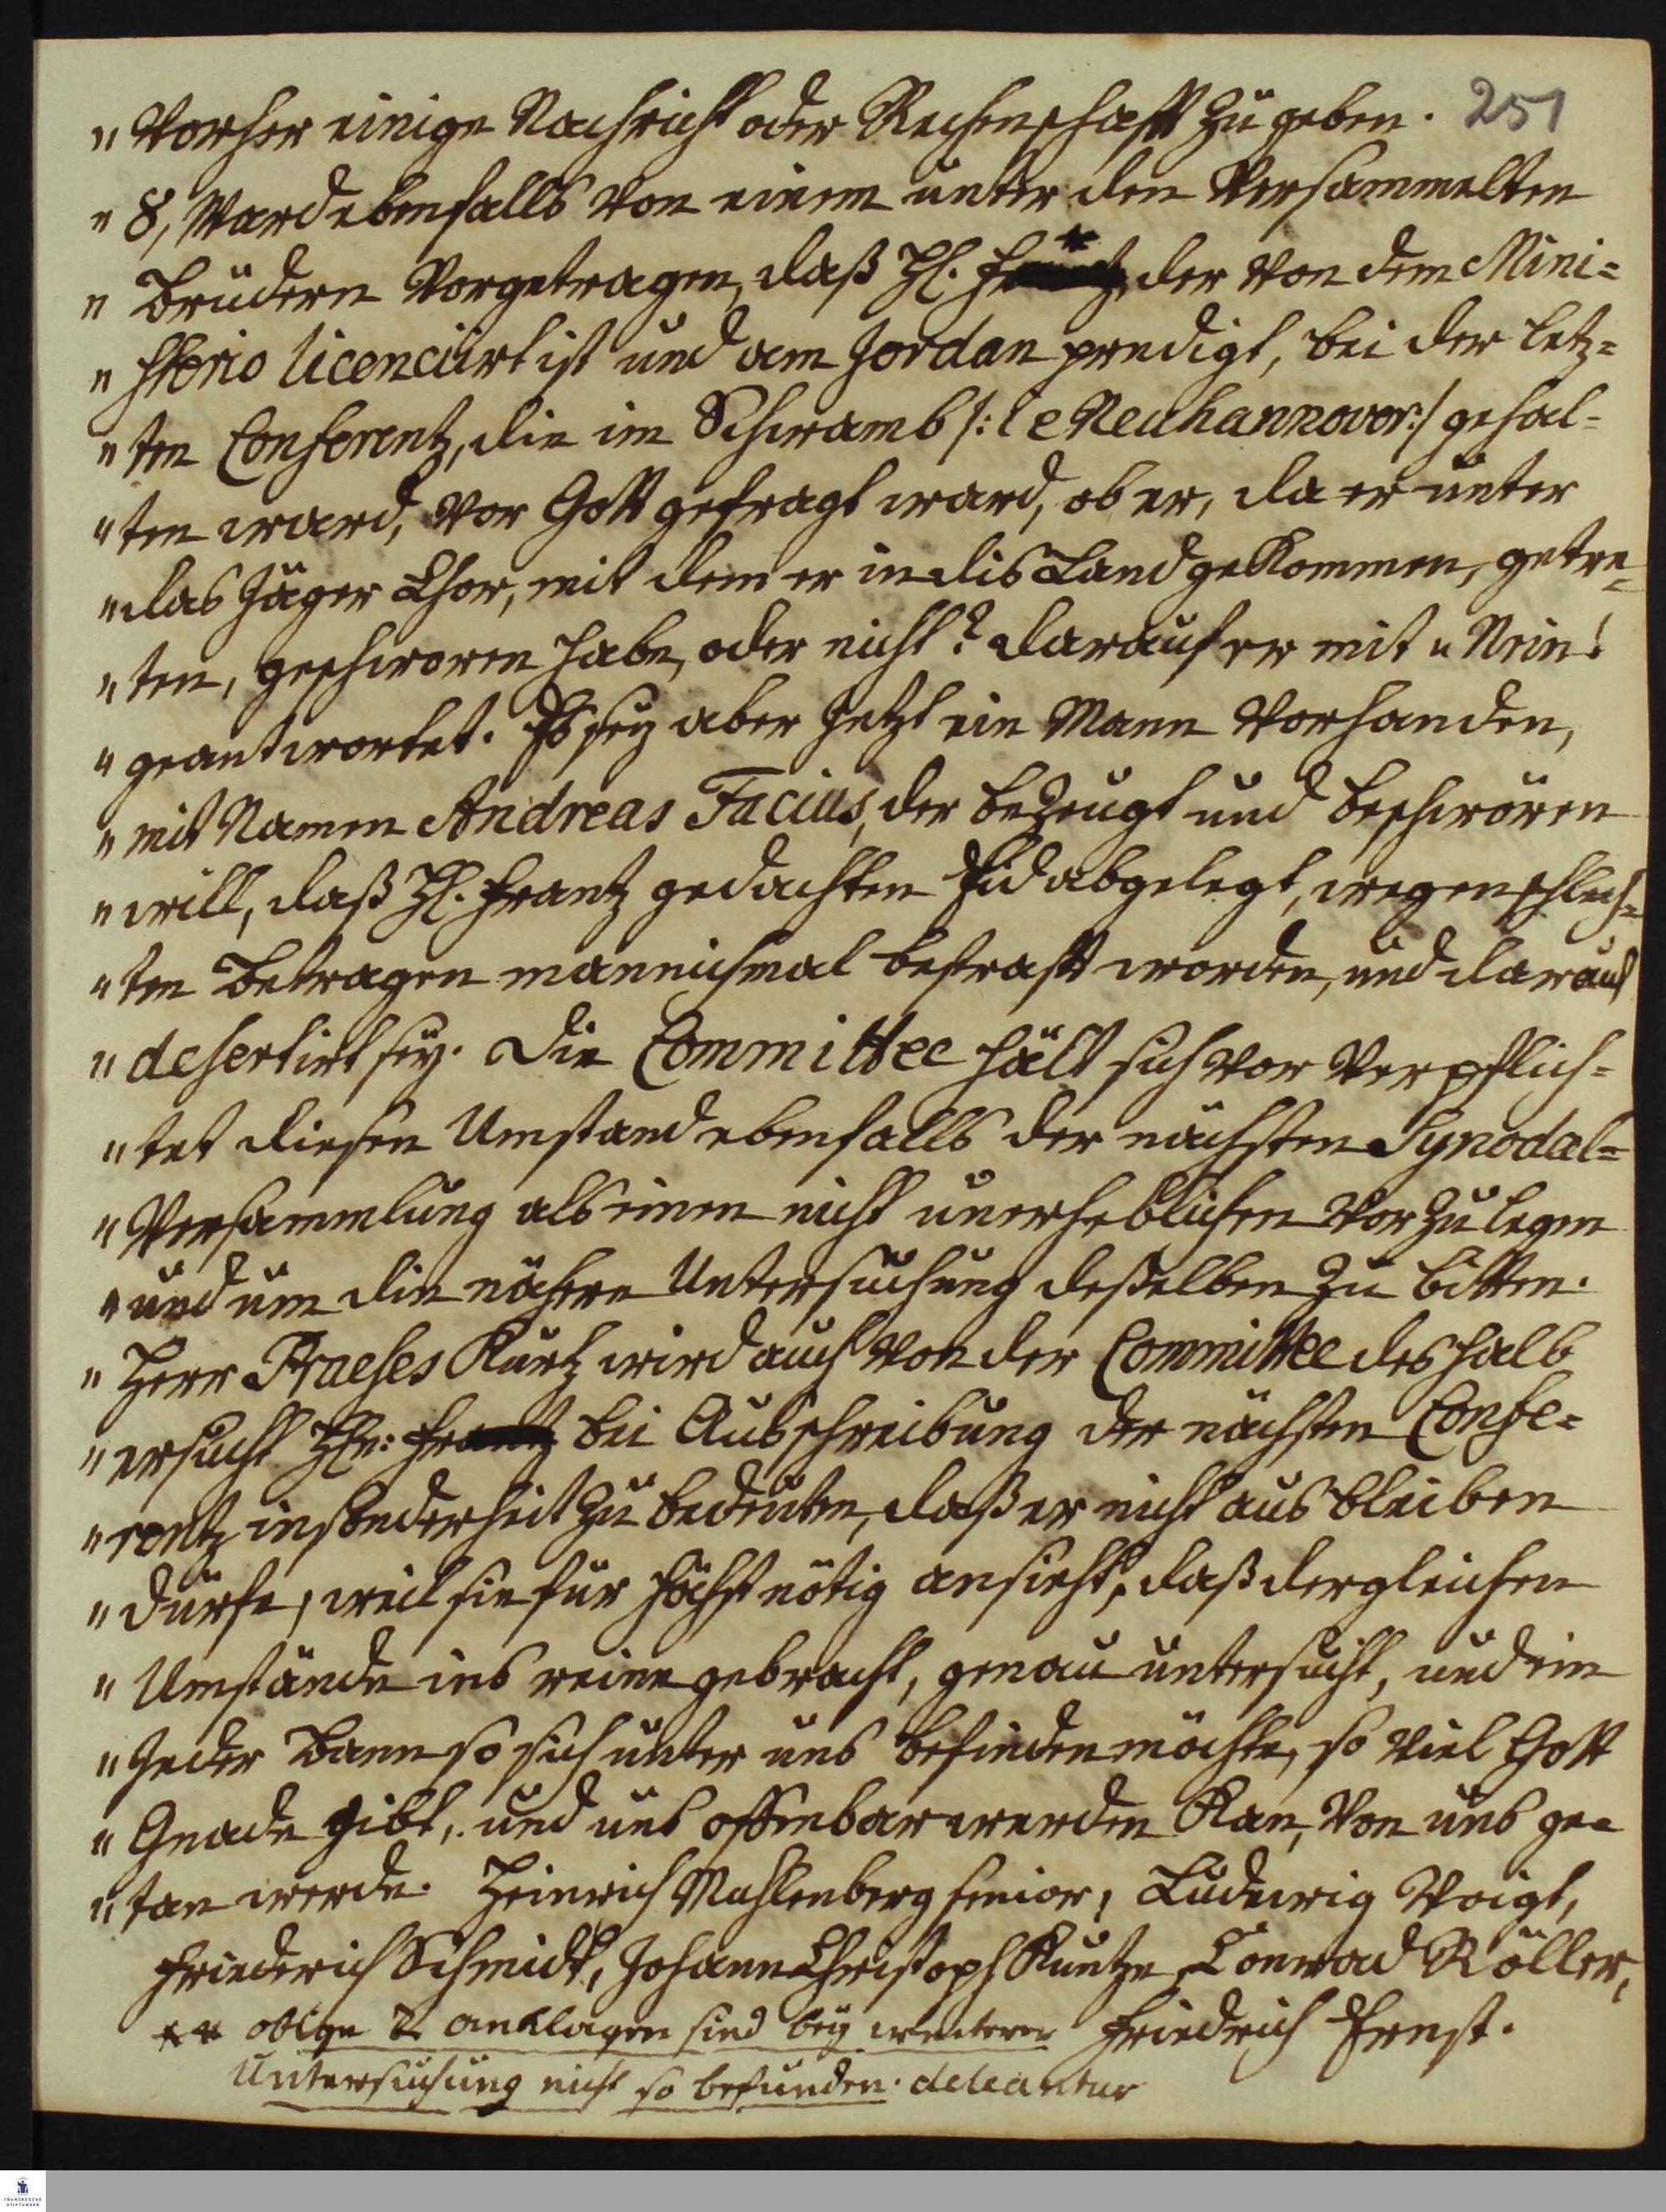 251
„ Vorher einige Nachricht oder Rechenschafft zu geben.
„ 8, Ward ebenfalls von einem unter den Versammelten
„ Brüdern Vorgetragen, daß H. Frantz, * der von dem Mini=
„ sterio licenciirt ist und am Jordan predigt, bei der letz=
„ ten Conferentz, die im Schwamb /: i e Neuhannover :/ gehal=
„ ten ward, vor Gott gefragt ward, ob er, da er unter
„ das Jäger Chor, mit dem er in dis Land gekommen, getre=
„ ten, geschworen habe, oder nicht? darauf er mit „ Nein!
„ geantwortet. Es sey aber Jetzt ein Mann Vorhanden,
„ mit Namen Andreas Facius, der bezeugt und beschwören
„ will, daß H. Frantz gedachten Eid abgelegt, wegen schlech=
„ ten Betragen mannichmal bestrafft worden, und darauf
„ desertirt sey. Die Committee hält sich vor Verpflich=
„ tet diesen Umstand ebenfalls der nächsten Synodal=
„ Versammlung als einen nicht unerheblichen Vor zu legen
„ und um die nähere Untersuchung deßelben zu bitten.
„ Herr Praeses Kurtz wird auch von der Committee deshalb
„ ersucht Hn: Frantz bei Ausschreibung der nächsten Confe=
„ rentz insonderheit zu bedeuten, daß er nicht aus bleiben
„ dürfe, weil sie für höchst nötig ansieht, daß dergleichen
„ Umstände ins reine gebracht, genau untersucht, und ein
„ Jeder Bann so sich unter uns befinden möchte, so viel Gott
„ Gnade gibt, und uns offenbar werden kan, von uns ge=
„ tan werde. Heinrich Muhlenberg senior, Ludewig Voigt,
Friederich Schmidt, Johann Christoph Kuntze, Conrad Röller,
Friedrich Ernst.
** obige 2 anklagen sind bey weiterer
Untersuchung nicht so befunden. deleantur
FRANCKESCHE
STIFTUNGEN